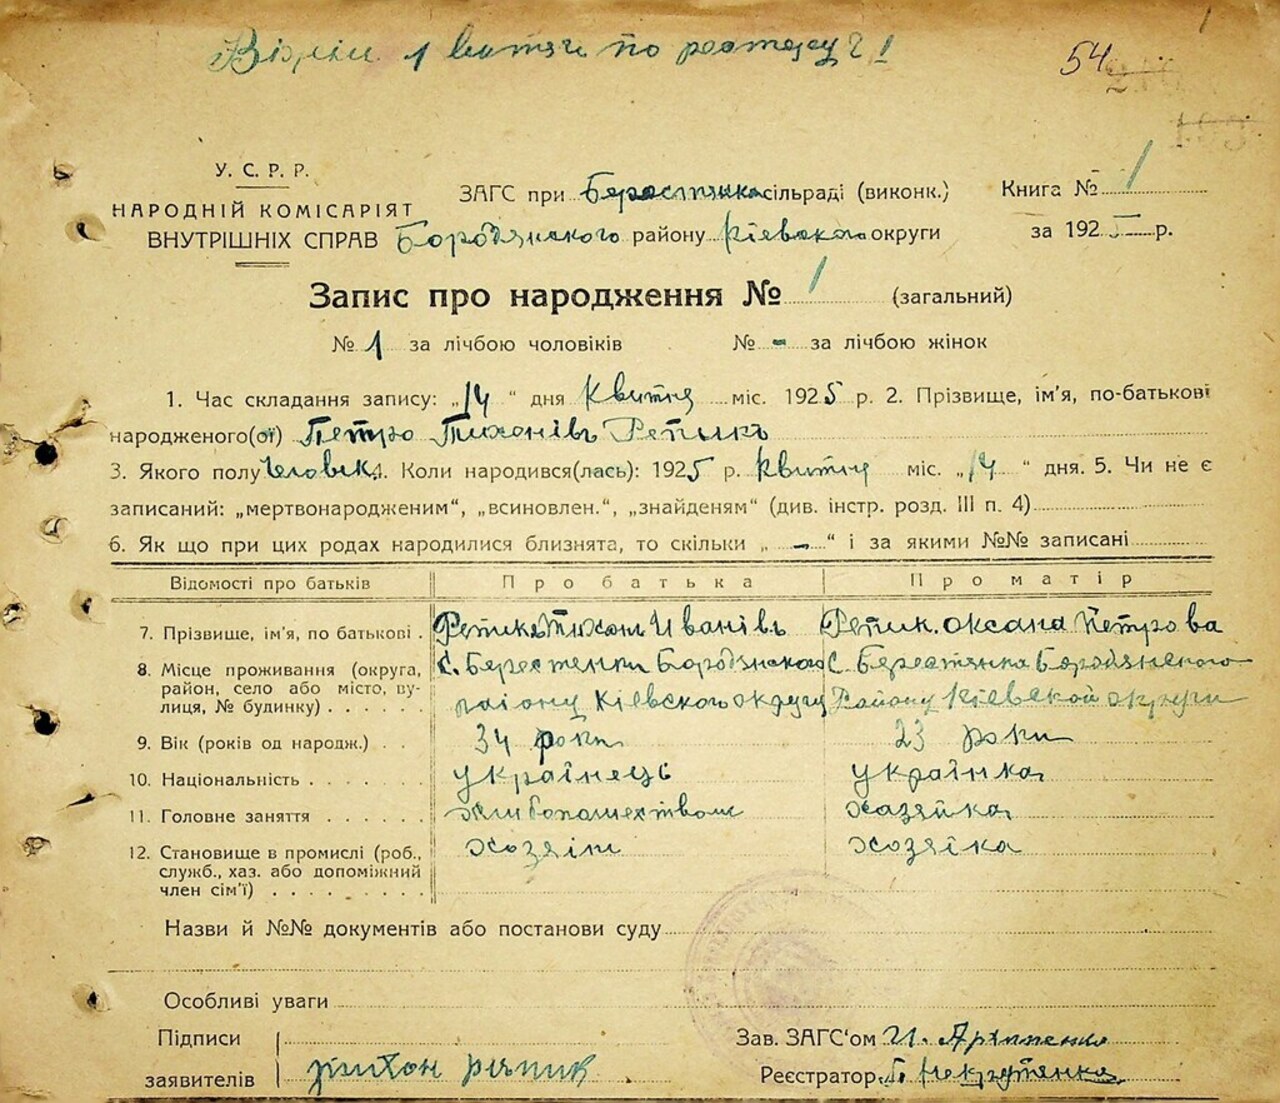 54
У. С. Р. Р.
НАРОДНІЙ КОМІСАРІЯТ
ВНУТРІШНІХ СПРАВ
ЗАГС при Берестянка сільраді (виконк.)
Бородянского району Кіевского округи
Книга № 1
за 1925 р.
Запис про народження № 1 (загальний)
№ 1 за лічбою чоловіків № - за лічбою жінок
1. Час складання запису: „14 “ дня Квитня міс. 1925 р. 2. Прізвище, ім'я, по-батькові
народженого(ої) Петро Тихонівъ Репикъ
3. Якого полу Человік. 4. Коли народився(лась): 1925 р. Квитня міс. „14 “ дня. 5. Чи не є
записаний: „мертвонародженим“, „всиновлен.“, „знайденям“ (див. інстр. розд. III п. 4)
6. Як що при цих родах народилися близнята, то скільки „ - “ і за якими №№ записані
Відомості про батьків Про батька Про матір
7. Прізвище, ім'я, по батькові . Репикъ Тихон Иванівъ Репик. Оксана Петрова
8. Місце проживання (округа, С. Берестянки Бородянского С. Берестянка Бородянского
район, село або місто, ву-
лиця, № будинку) . . . . . району Кіевского округу Району Кіевской округи
9. Вік (років од народж.) . . 34 роки 23 роки
10. Національність . . . . . українець українка
11. Головне заняття . . . . . хазяйка
12. Становище в промислі (роб., хозяін хозяйка
служб., хаз. або допоміжний
член сім'ї) . . . . . . . .
Назви й №№ документів або постанови суду
Особливі уваги
Підписи
заявителів Тихон Репик
Зав. ЗАГС'ом И. Архипенко
Реєстратор